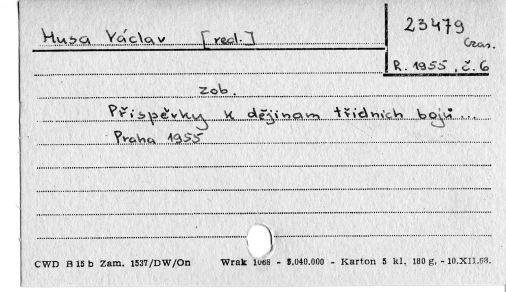 Husa Václav [red.]
23479
Czas.
R. 1955, č. 6
zob.
Příspěvky k dějinam třídních bojů...
Praha 1955
CWD B 15 b Zam. 1537/DW/On Wrak 1068 - 5.040.000 - Karton 5 kl. 180 g, - 10.XII.68.